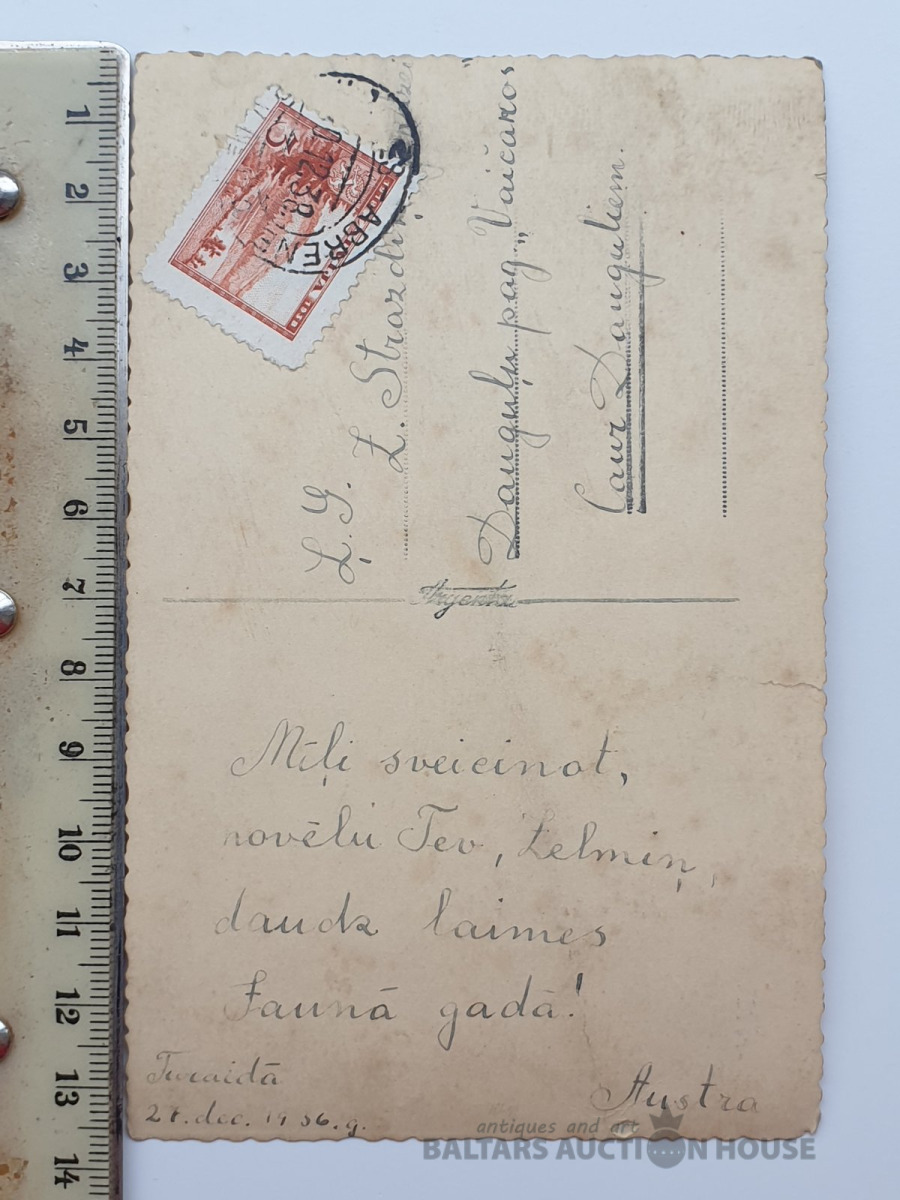 Ļ. G.
Z. Strazdiņ
Dauguļu pag. „Vaičaros
Caur Dauguļiem.
LATVIJA 1938
3
ABRENE
12 38
Mīļi sveicinot,
novēlu Tev, Zelmiņ,
daudz laimes
Jaunā gadā!
Turaidā
dec. 19 6. g.
Austra
1
2
3
4
5
6
7
8
9
10
11
12
13
14
antiques and art
BALTARS AUCTION HOUSE